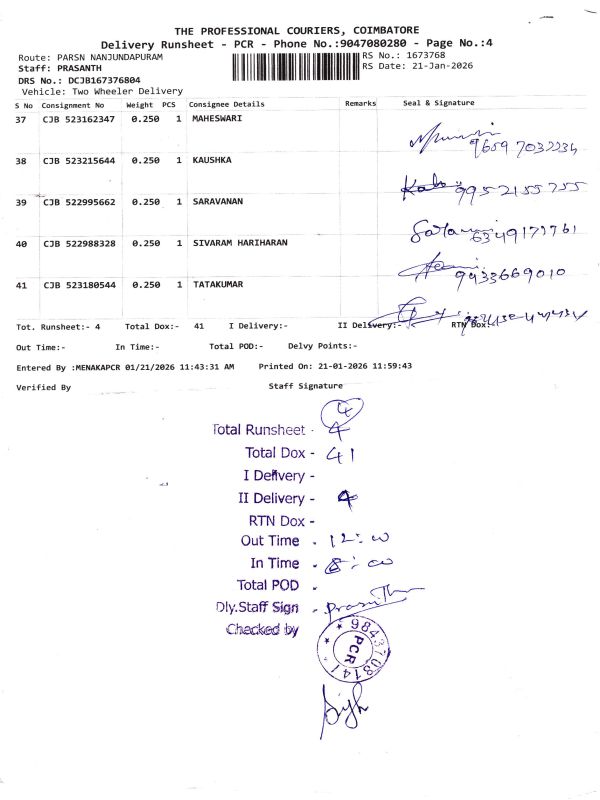 THE PROFESSIONAL COURIERS, COIMBATORE
Delivery Runsheet - PCR - Phone No.:9047080280 - Page No.:4
Route: PARSN NANJUNDAPURAM
RS No.: 1673768
Staff: PRASANTH
RS Date: 21-Jan-2026
DRS No.: DCJB167376804
Vehicle: Two Wheeler Delivery
S No Consignment No Weight PCS Consignee Details Remarks Seal & Signature
37 CJB 523162347 0.250 1 MAHESWARI
38 CJB 523215644 0.250 1 KAUSHKA
9952155755
39 CJB 522995662 0.250 1 SARAVANAN
40 CJB 522988328 0.250 1 SIVARAM HARIHARAN
9433669010
41 CJB 523180544 0.250 1 TATAKUMAR
Tot. Runsheet:- 4 Total Dox:- 41 I Delivery:- II Delivery:- RTN Dox:
Out Time:- In Time:- Total POD:- Delvy Points:-
Entered By :MENAKAPCR 01/21/2026 11:43:31 AM Printed On: 21-01-2026 11:59:43
Verified By Staff Signature
4
Total Runsheet - 4
Total Dox - 41
I Delivery -
II Delivery - 4
RTN Dox -
Out Time - 12:00
In Time - 8:00
Total POD -
Dly.Staff Sign - Prasanth
Checked by
* 9843708141 *
PCR